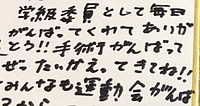 学級委員として毎日
がんばってくれてありが
とう!!手術がんばって
ぜったいかえ。てきてね!!
みんなも運動会がんば
るから